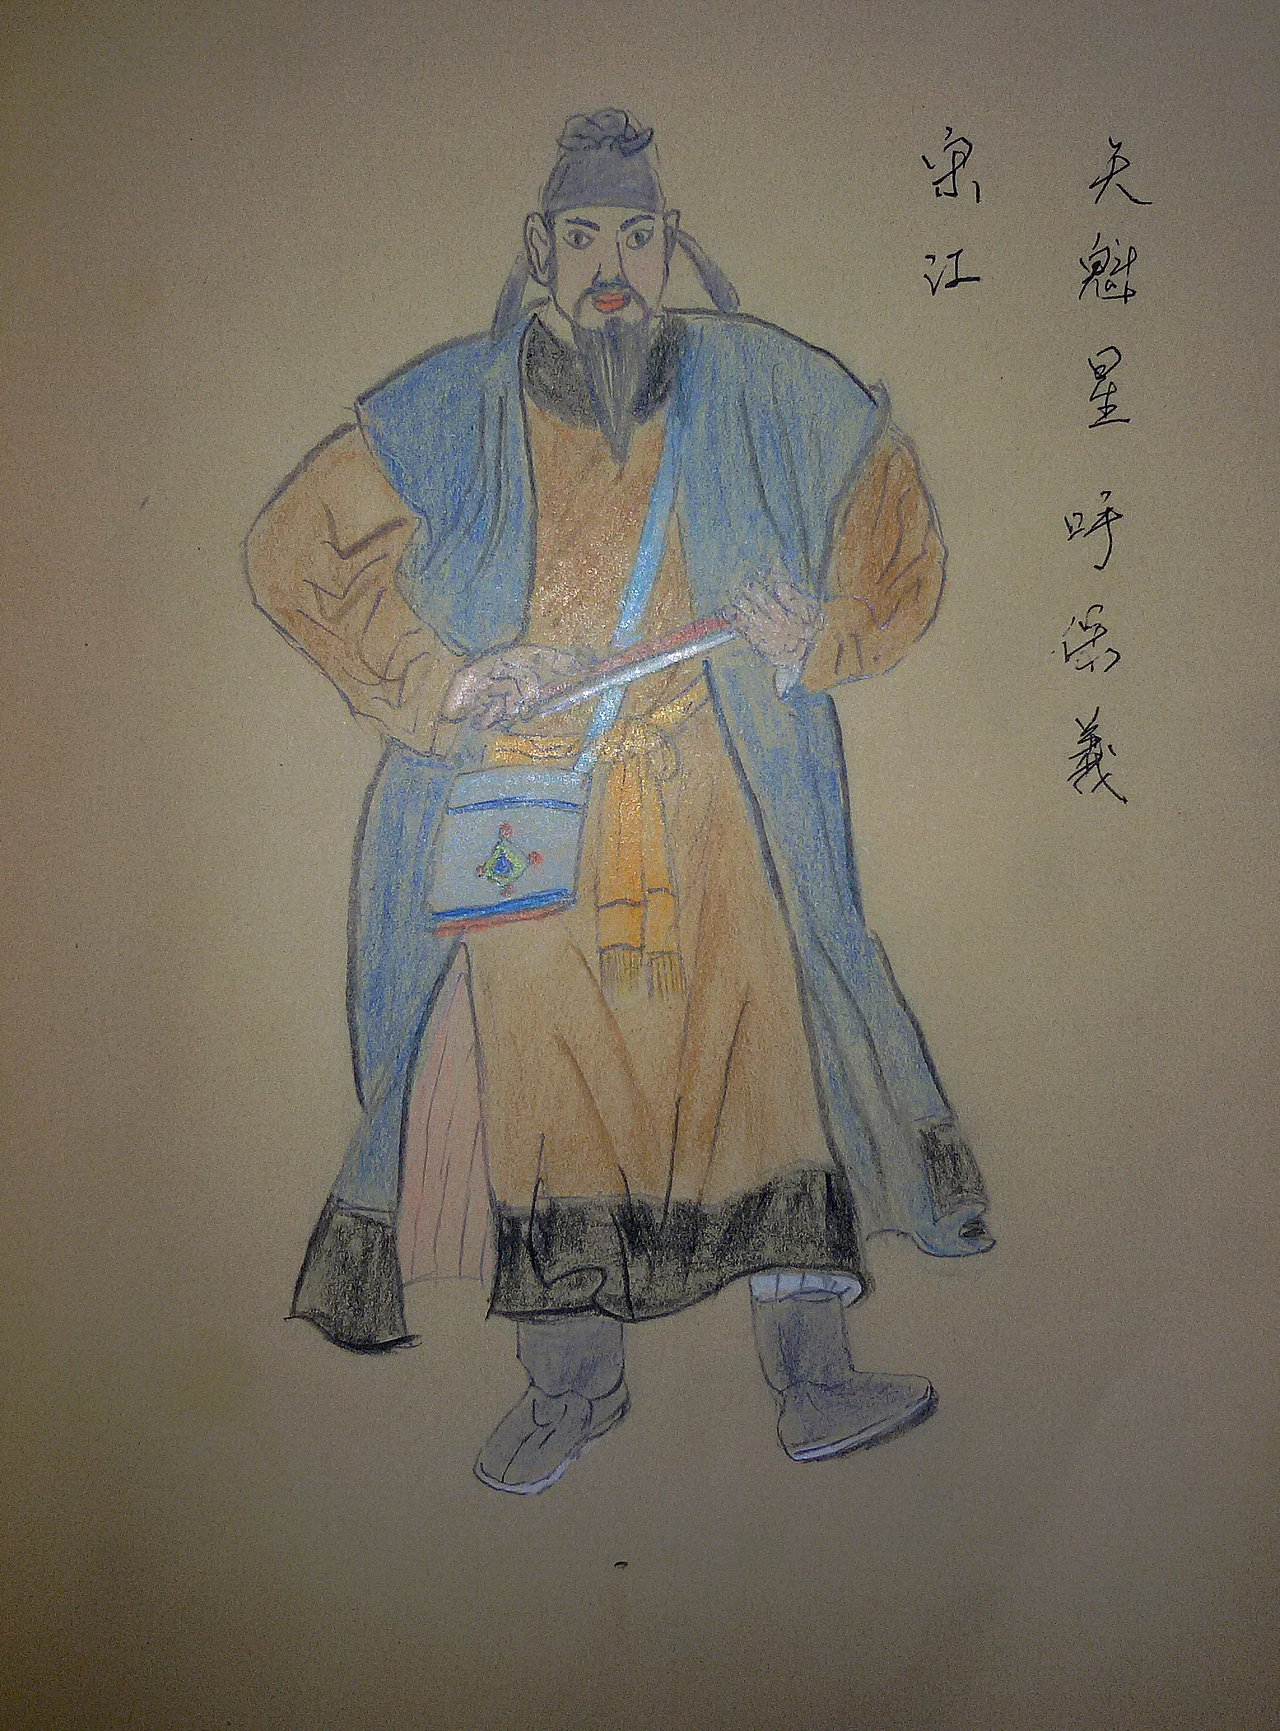 天魁星呼保義
宋江